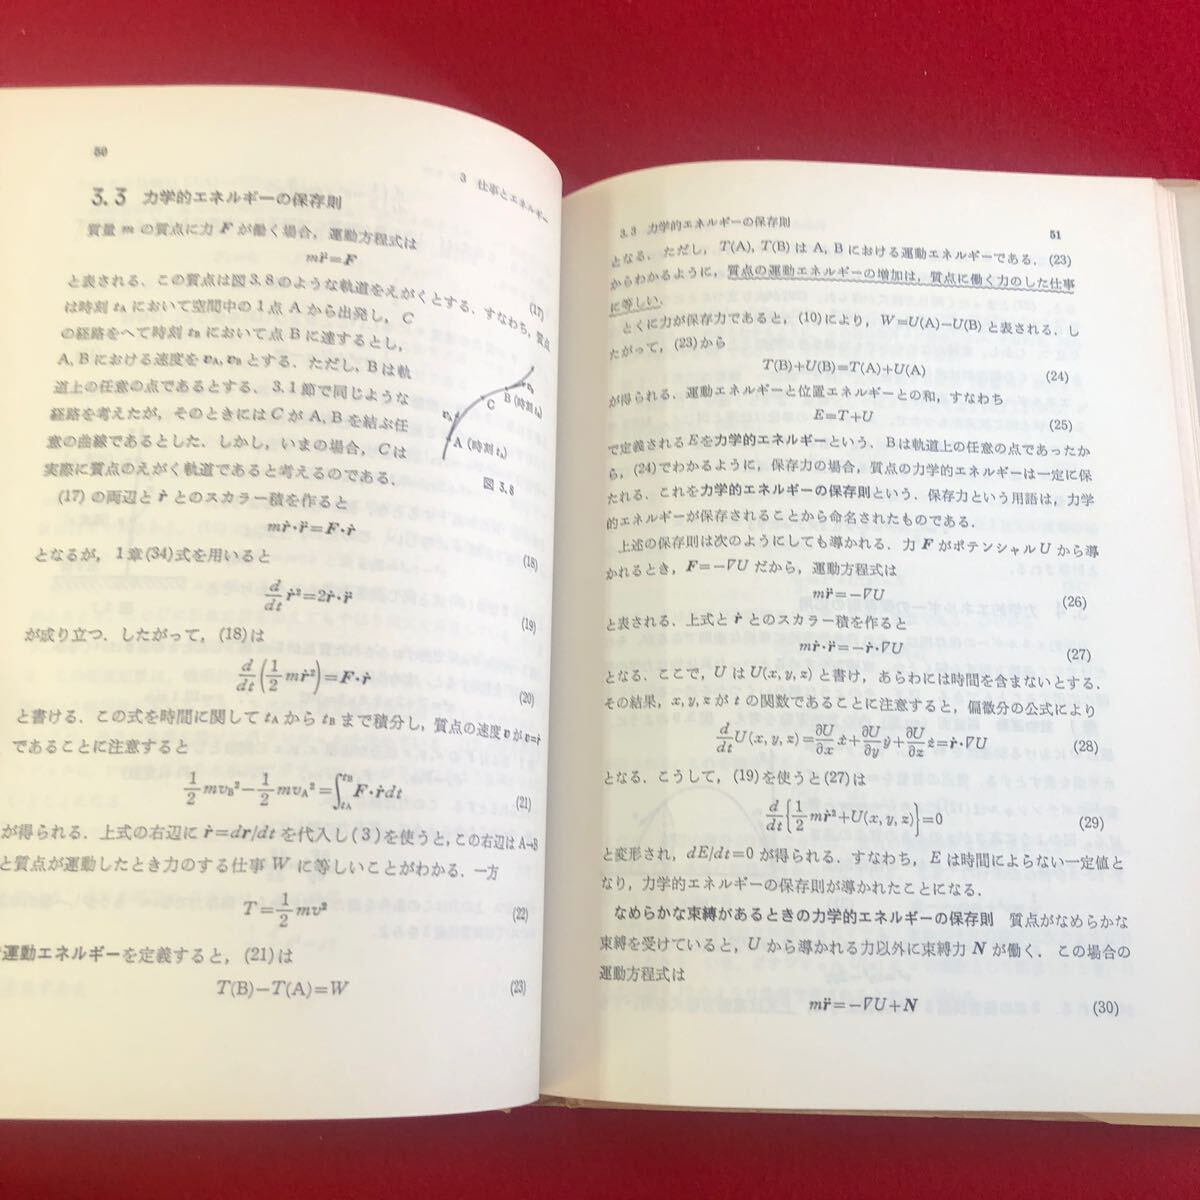 50
3 仕事とエネルギー
3.3 力学的エネルギーの保存則
質量 m の質点に力 F が働く場合，運動方程式は
mr̈=F
(17)
と表される．この質点は図3.8のような軌道をえがくとする．すなわち，質点
は時刻 tA において空間中の1点 A から出発し，C
の経路をへて時刻 tB において点 B に達するとし，
A, B における速度を vA, vB とする．ただし，B は軌
道上の任意の点であるとする．3.1節で同じような
経路を考えたが，そのときには C が A, B を結ぶ任
意の曲線であるとした．しかし，いまの場合，C は
実際に質点のえがく軌道であると考えるのである．
vB
B (時刻 tB)
C
vA
A (時刻 tA)
図 3.8
(17) の両辺と ṙ とのスカラー積を作ると
mṙ·r̈=F·ṙ
(18)
となるが，1章(34)式を用いると
d/dt ṙ²=2ṙ·r̈
(19)
が成り立つ．したがって，(18)は
d/dt(1/2 mṙ²)=F·ṙ
(20)
と書ける．この式を時間に関して tA から tB まで積分し，質点の速度 v が v=ṙ
であることに注意すると
1/2 mvB²−1/2 mvA²=∫tA^tB F·ṙdt
(21)
が得られる．上式の右辺に ṙ=dr/dt を代入し(3)を使うと，この右辺は A→B
と質点が運動したとき力のする仕事 W に等しいことがわかる．一方
T=1/2 mv²
(22)
運動エネルギーを定義すると，(21)は
T(B)−T(A)=W
(23)
3.3 力学的エネルギーの保存則
51
となる．ただし，T(A), T(B) は A, B における運動エネルギーである．(23)
からわかるように，質点の運動エネルギーの増加は，質点に働く力のした仕事
に等しい．
とくに力が保存力であると，(10)により，W=U(A)−U(B) と表される．し
たがって，(23)から
T(B)+U(B)=T(A)+U(A)
(24)
が得られる．運動エネルギーと位置エネルギーとの和，すなわち
E=T+U
(25)
で定義される E を力学的エネルギーという．B は軌道上の任意の点であったか
ら，(24)でわかるように，保存力の場合，質点の力学的エネルギーは一定に保
たれる．これを力学的エネルギーの保存則という．保存力という用語は，力学
的エネルギーが保存されることから命名されたものである．
上述の保存則は次のようにしても導かれる．力 F がポテンシャル U から導
かれるとき，F=−∇U だから，運動方程式は
mr̈=−∇U
(26)
と表される．上式と ṙ とのスカラー積を作ると
mṙ·r̈=−ṙ·∇U
(27)
となる．ここで，U は U(x, y, z) と書け，あらわには時間を含まないとする．
その結果，x, y, z が t の関数であることに注意すると，偏微分の公式により
d/dt U(x, y, z)=∂U/∂x ẋ+∂U/∂y ẏ+∂U/∂z ż=ṙ·∇U
(28)
となる．こうして，(19)を使うと(27)は
d/dt{1/2 mṙ²+U(x, y, z)}=0
(29)
と変形され，dE/dt=0 が得られる．すなわち，E は時間によらない一定値と
なり，力学的エネルギーの保存則が導かれたことになる．
なめらかな束縛があるときの力学的エネルギーの保存則 質点がなめらかな
束縛を受けていると，U から導かれる力以外に束縛力 N が働く．この場合の
運動方程式は
mr̈=−∇U+N
(30)